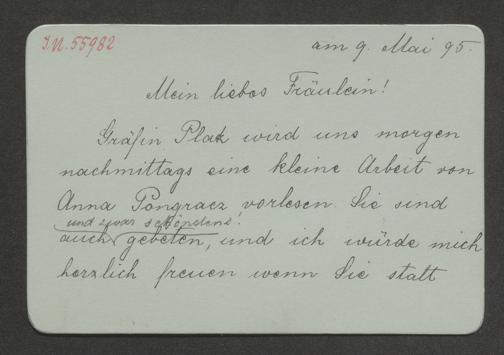 I.N. 55982
am 9. Mai 95.
Mein liebes Fräulein!
Gräfin Platz wird uns morgen
nachmittags eine kleine Arbeit von
Anna Pongracz vorlesen. Sie sind
und zwar schönstens!
auch gebeten, und ich würde mich
herzlich freuen wenn Sie statt